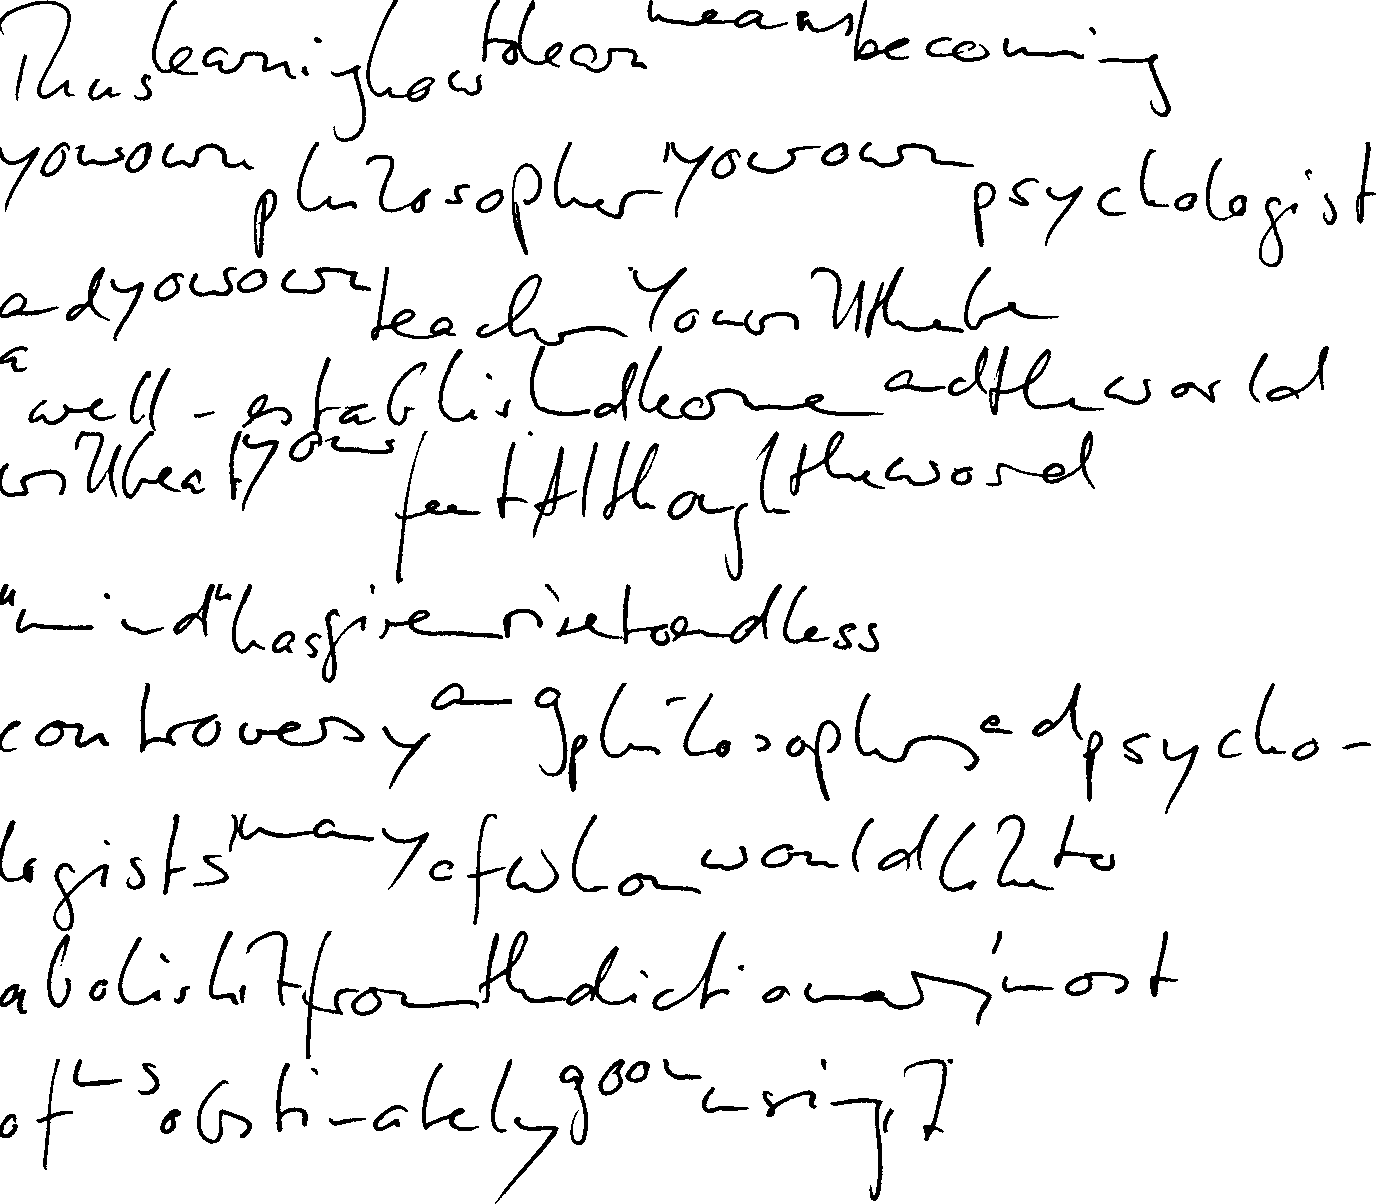 Thus learning how to learn means becoming
your own philosopher your own psychologist
and your own teacher You will then be
a well-established home and the world
will be at your feet Although the word
"mind" has given rise to endless
controversy among philosophers and psycho-
logists many of whom would like to
abolish it from the dictionary, most
of us obstinately go on using it